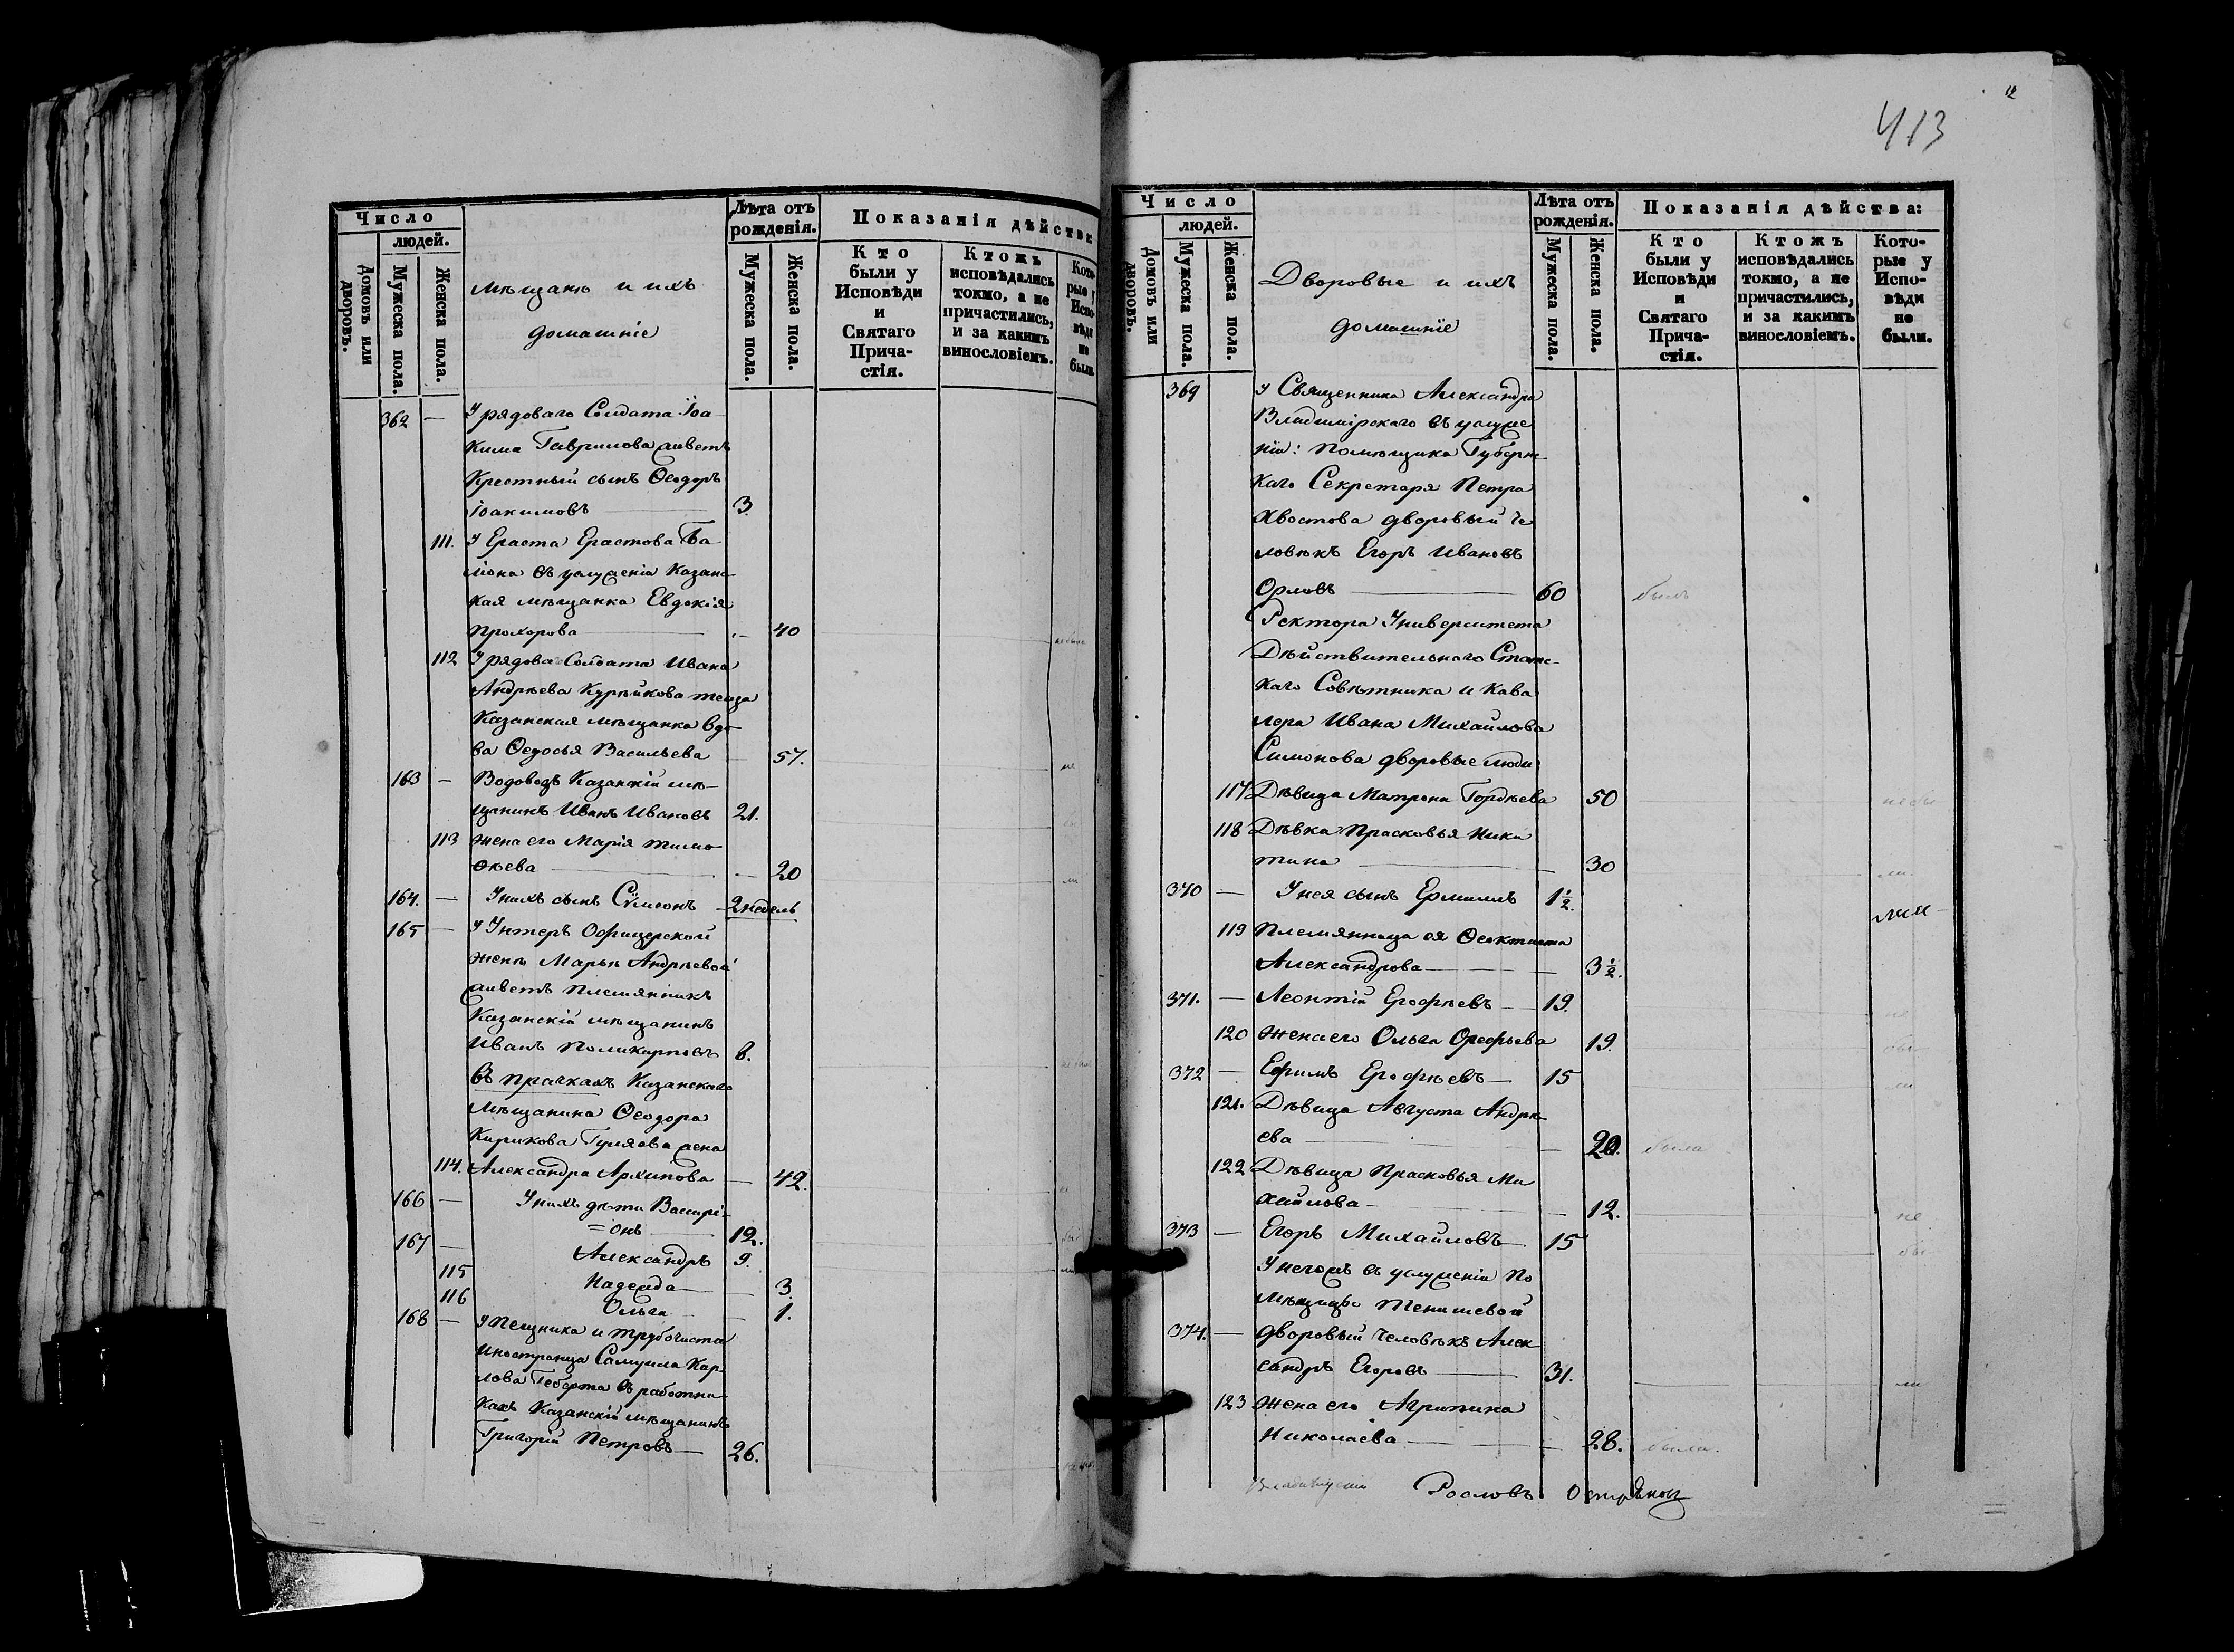 Число
людей.
Домовъ или дворовъ.
Мужеска пола.
Женска пола.
Мѣщане и ихъ
домашніе
Лѣта отъ рожденія.
Мужеска пола.
Женска пола.
Показанія дѣйства:
Кто были у Исповѣди и Святаго Прича-стія.
Ктожъ исповѣдались токмо, а не причастились, и за какимъ винословіемъ.
Кото-рые у Испо-вѣди не были.
362 — У рядоваго Солдата Іоа
кима Гаврилова живетъ
Крестный сынъ Ѳеодоръ
Іоакимовъ — 3.
111. У Ераста Ерастова
въ услуженіи Казанс
кая мѣщанка Евдокія
Прохорова — 40
112 У рядова Солдата Ивана
Андрѣева Курѣйкова теща
Казанская мѣщанка вдо
ва Ѳедосья Васильева — 57.
163 — Водовозъ Казанскій мѣ—
щанинъ Иванъ Ивановъ 21.
113 жена его Марія Тимо
ѳѣева — 20
164. — У нихъ сынъ Сѵмеонъ — 2 недѣль
165 — У Унтеръ Офицерской
жены Марьи Андрѣевой
живетъ племянникъ
Казанскій мѣщанинъ
Иванъ Поликарповъ 8.
въ прачкахъ Казанскаго
мѣщанина Ѳеодора
Кирикова Гуляева жена
114. Александра Архипова — 42.
166 — У нихъ дѣти Валирі-
=онъ — 12.
167 — Александръ 9.
115 Надежда — 3.
116 Ольга — 1.
168 — У Печника и трубочиста
Иностранца Самуила Кар-
лова въ работни
кахъ Казанскій мѣщанинъ
Григорій Петровъ — 26.
12
413
Число
людей.
Домовъ или дворовъ.
Мужеска пола.
Женска пола.
Дворовые и ихъ
домашніе
Лѣта отъ рожденія.
Мужеска пола.
Женска пола.
Показанія дѣйства:
Кто были у Исповѣди и Святаго Прича-стія.
Ктожъ исповѣдались токмо, а не причастились, и за какимъ винословіемъ.
Кото-рые у Испо-вѣди не были.
369 У Священника Александра
Владимірскаго въ услуже
ніи: помѣщика Губернс
каго Секретаря Петра
Хвостова дворовый че
ловѣкъ Егоръ Ивановъ
Орловъ — 60 былъ
Ректора Университета
Дѣйствительнаго Статс-
каго Совѣтника и Кава
лера Ивана Михайлова
Симонова дворовые люди
117 Дѣвица Матрона Гордѣева 50
118 Дѣвка Прасковья Ники
тина — 30
370 — У нея сынъ Ермилъ 1½.
119 Племянница ея Ѳеоктиста
Александрова — 3½.
371. — Леонтій Ерофѣевъ — 19.
120 Жена его Ольга Орефьева 19.
372 — Ефимъ Ерофѣевъ — 15
121. Дѣвица Августа Андрѣ
ева — 20. была
122 Дѣвица Прасковья Ми
хайлова — 12. не
373 — Егоръ Михайловъ — 15
У негожъ въ услуженіи По
мѣщицы Тенишевой
374. — дворовый человѣкъ Алек
сандръ Егоровъ — 31.
123 Жена его Агрипина
Николаева — 28. была.